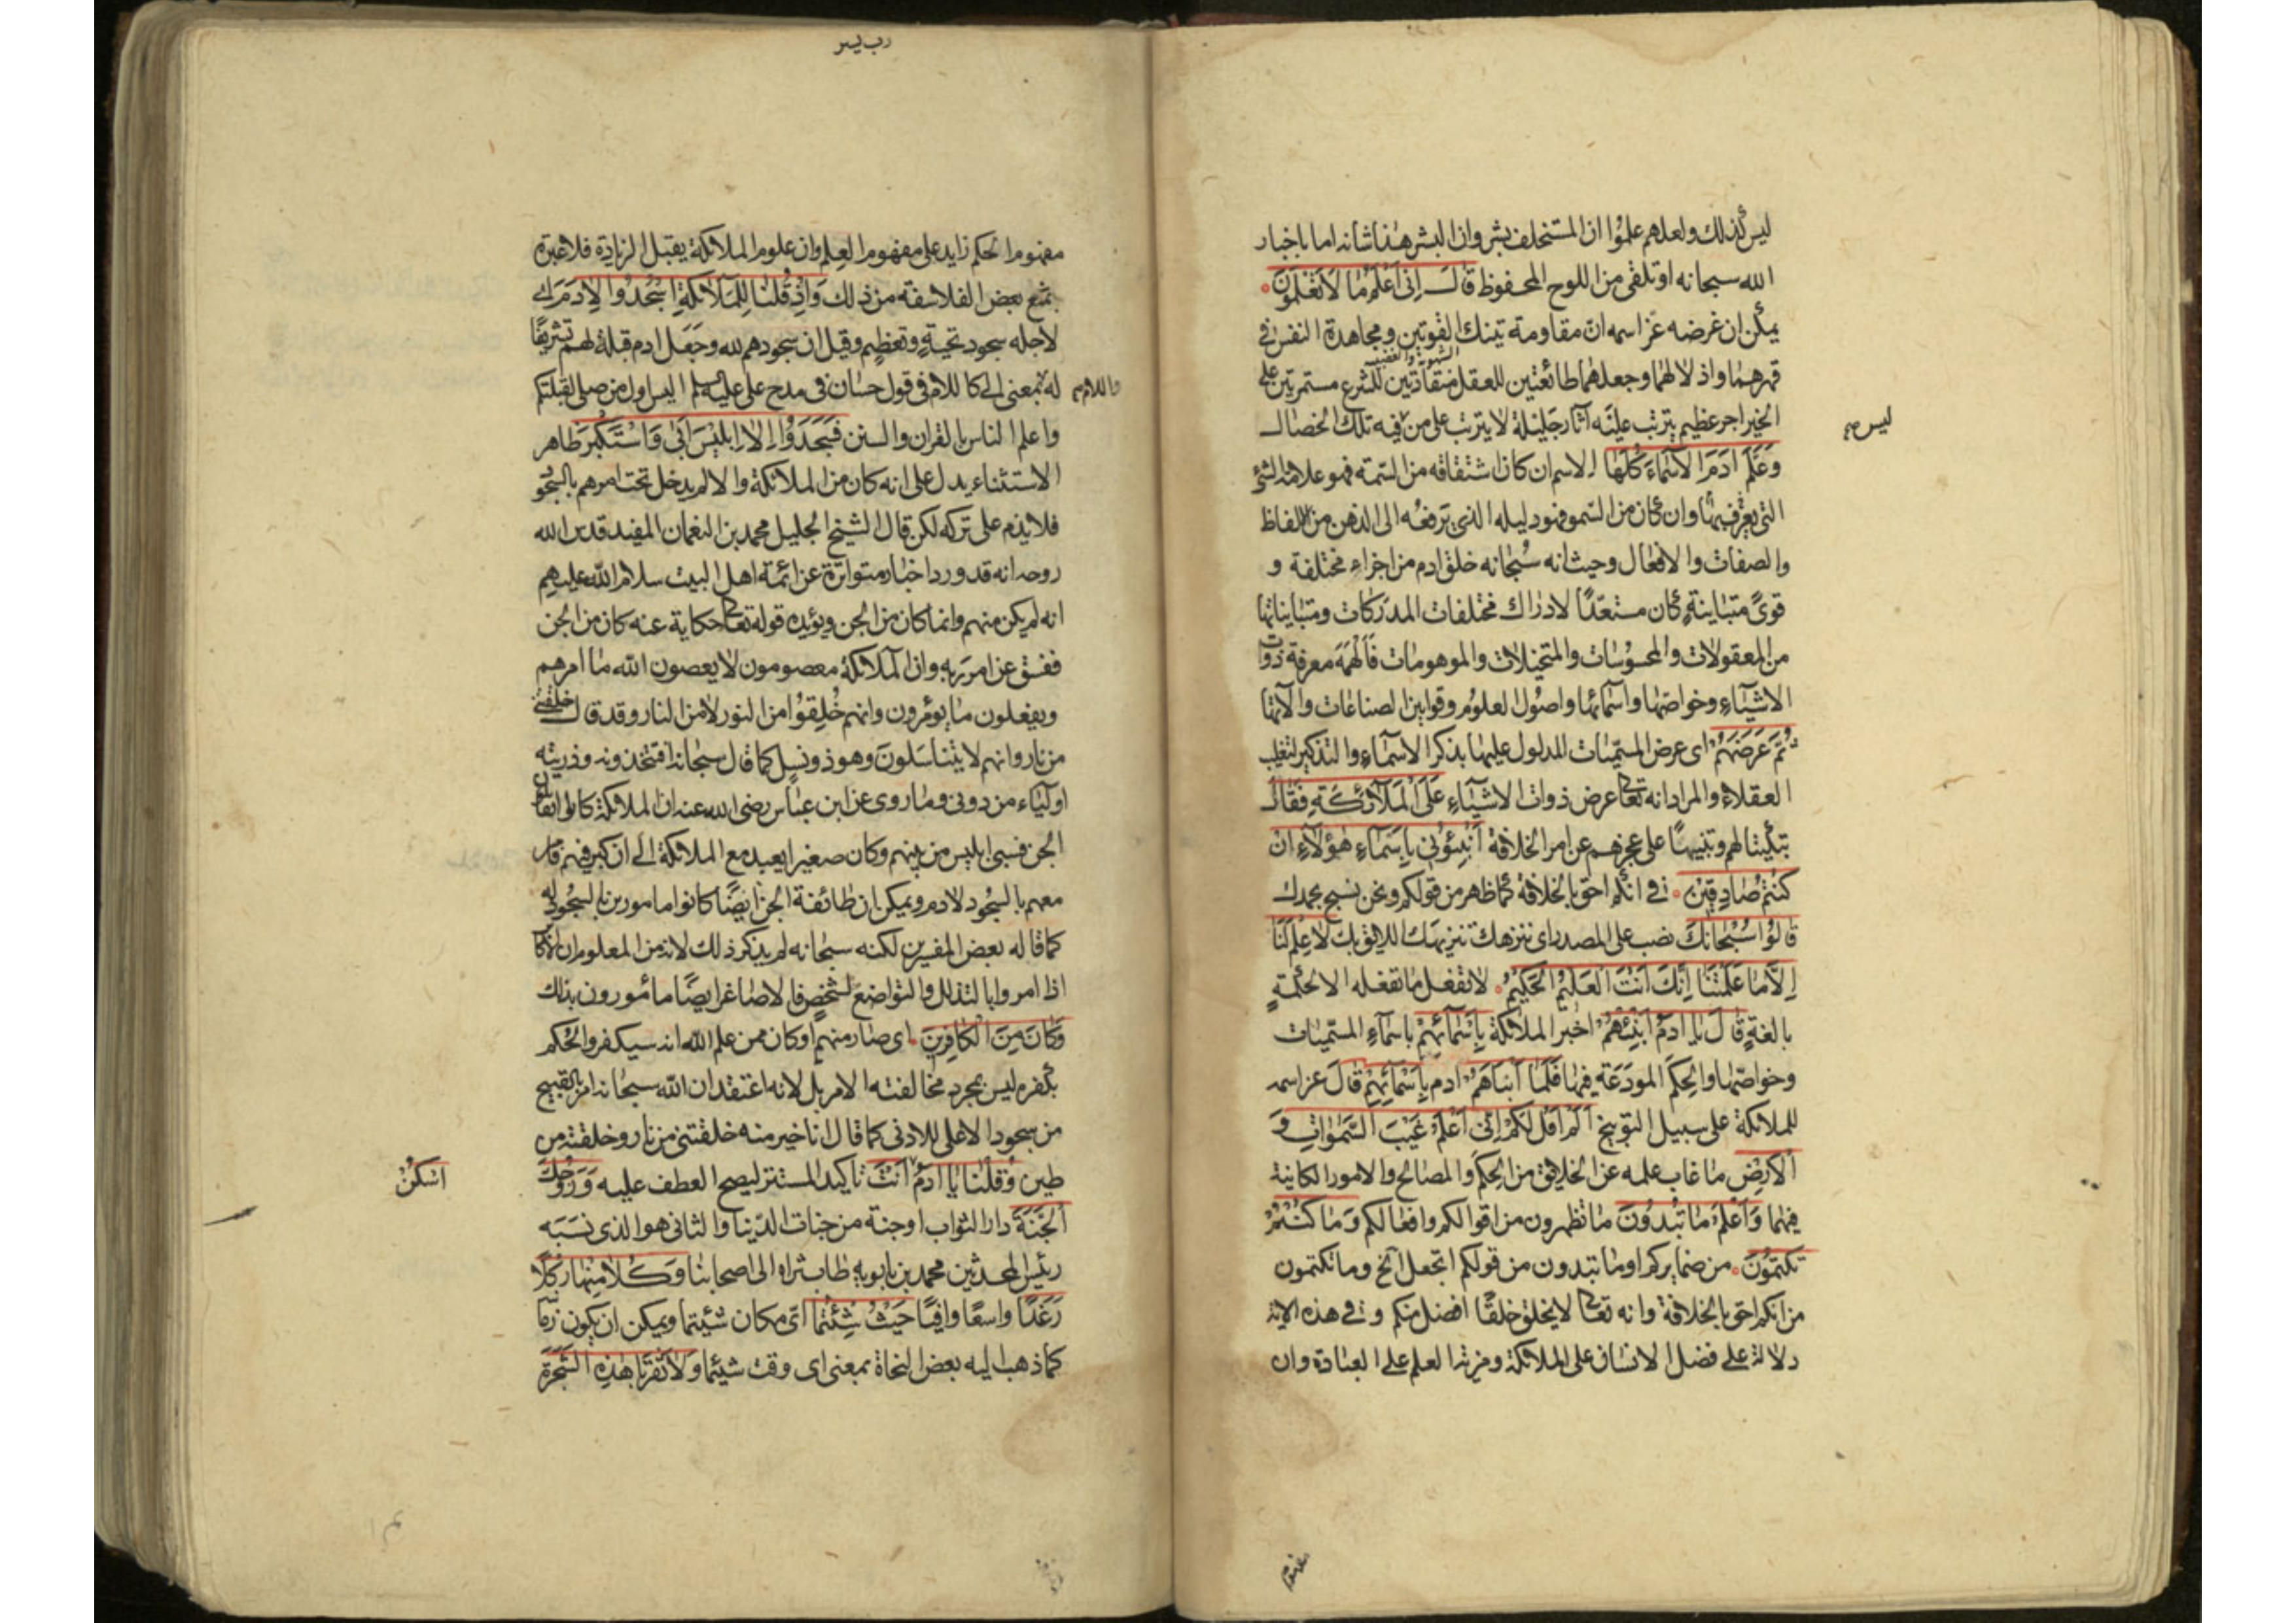 ليس كذلك ولعلهم علموا ان المستخلف بشر وان البشر هذا شانه اما باخبار
الله سبحانه او تلقى من اللوح المحفوظ قال اِنّى اَعْلَمُ مَا لاَ تَعْلَمُونَ
يمكن ان غرضه عز اسمه ان مقاومة تينك القوتين ومجاهدة النفس فى
الشهوة والغضب
قهرهما واذلالهما وجعلهما طائعتين للعقل منقادتين للشرع مستمرتين على
الخير اجر عظيم يترتب عليه آثار جليلة لا يترتب على من فيه تلك الخصال
ليس صح
وَعَلَّمَ ادَمَ الاَسْمَاءَ كُلَّهَا الاسم ان كان اشتقاقه من السمة فهو علامة الشئ
التى يعرف بها وان كان من السمو فهو دليله الذى يرفعه الى الذهن من الالفاظ
والصفات والافعال وحيث انه سبحانه خلق ادم من اجزاء مختلفة و
قوىً متباينةٍ كان مستعدًا لادراك مختلفات المدركات ومتبايناتها
من المعقولات والمحسوسات والمتخيلات والموهومات فَاَلْهَمَهُ معرفة ذوات
الاشياء وخواصها واسمائها واصول العلوم وقوانين الصناعات والآتها
ثُمَّ عَرَضَهُمْ اى عرض المسميات المدلول عليها بذكر الاسماء والتذكير لتغليب
العقلاء والمراد انه تعالى عرض ذوات الاشياء عَلَى المَلآئِكَةِ فَقَالَ
تبكيتا لهم وتنبيهًا على عجزهم عن امر الخلافة اَنْبِئُونِى بِاَسْمَاءِ هٰؤُلآءِ اِنْ
كُنْتُمْ صَادِقِينَ فى انكم احق بالخلافة كما ظهر من قولكم ونحن نسبح بحمدك
قَالُوا سُبْحَانَكَ نصب على المصدر اى ننزهك تنزيهك اللايق بك لاَ عِلْمَ لَنَا
اِلاَّ مَا عَلَّمْتَنَا اِنَّكَ اَنْتَ العَلِيْمُ الحَكِيْمُ لا تفعل ما تفعله الا لحكمةٍ
بالغةٍ قَالَ يَا ادَمُ اَنْبِئْهُمْ اخبر الملائكة بِاَسْمَآئِهِمْ باسماء المسميات
وخواصها والحِكَم المودَعَة فيها فَلَمَّا اَنْبَاَهُمْ ادم بِاَسْمَائِهِمْ قَالَ عز اسمه
للملائكة على سبيل التوبيخ اَلَمْ اَقُلْ لَكُمْ اِنِّى اَعْلَمُ غَيْبَ السَّمٰوَاتِ وَ
الاَرْضِ ما غاب علمه عن الخلايق من الحِكَم والمصالح والامور الكاينة
فيهما وَاَعْلَمُ مَا تُبْدُونَ ما تظهرون من اقوالكم وافعالكم وَمَا كُنْتُمْ
تَكْتُمُونَ من ضمايركم او ما تبدون من قولكم اتجعل الخ وما تكتمون
من انكم احق بالخلافة وانه تعالى لا يخلق خلقًا افضل منكم وفى هذه الاية
دلالة على فضل الانسان على الملائكة ومزية العلم على العبادة وان
رب يسر
مفهوم الحكم زايد على مفهوم العلم وان علوم الملائكة يقبل الزيادة فلا عبرة
بمنع بعض الفلاسفة من ذلك وَاِذْ قُلْنَا لِلْمَلآئِكَةِ اسْجُدُوا لاِدَمَ اى
لاجله سجود تحيةٍ وتعظيمٍ وقيل ان سجودهم لله وجَعَل ادم قبلة لهم تشريفًا
له بمعنى الى كاللام فى قول حسان فى مدح على عليه السلم اليس اول من صلى لقبلتكم
واللام صح
واعلم الناس بالقران والسنن فَسَجَدُوْا اِلاَّ اِبْلِيْسَ اَبَى وَاسْتَكْبَرَ ظاهر
الاستثناء يدل على انه كان من الملائكة والا لم يدخل تحت امرهم بالسجود
فلا يذم على تركه لكن قال الشيخ الجليل محمد بن النعمان المفيد قدس الله
روحه انه قد ورد اخبار متواترة عن ائمة اهل البيت سلام الله عليهم
انه لم يكن منهم وانما كان من الجن ويؤيده قوله تعالى حكاية عنه كان من الجن
ففسق عن امر ربه وان الملائكة معصومون لا يعصون الله ما امرهم
ويفعلون ما يؤمرون وانهم خُلِقُوا من النور لا من النار وقد قال خلقتنى
من نار وانهم لا يتناسلون وهو ذو نسل كما قال سبحانه افتتخذونه وذريته
اولياء من دونى وما روى عن ابن عباس رضى الله عنه ان الملائكة كانوا تقاتل
الجن فسبى ابليس من بينهم وكان صغيرا يعبد مع الملائكة الى ان كبر فيهم فامر
معهم بالسجود لادم ويمكن ان طائفة الجن ايضًا كانوا مامورين بالسجود له
كما قاله بعض المفسرين لكنه سبحانه لم يذكر ذلك لانه من المعلوم ان الاكابر
اذا امروا بالتذلل والتواضع لشخصٍ فالاصاغر ايضًا مأمورون بذلك
وَكَانَ مِنَ الْكَافِرِيْنَ اى صار منهم او كان ممن علم الله انه سيكفر والحكم
بكفره ليس بمجرد مخالفته الامر بل لانه اعتقد ان الله سبحانه امر بالقبيح
من سجود الاعلى للادنى كما قال انا خير منه خلقتنى من نار وخلقته من
طين وَقُلْنَا يَا ادَمُ اَنْتَ تاكيد المستتر ليصح العطف عليه وَزَوْجُكَ
اسْكُنْ
الْجَنَّةَ دار الثواب او جنة من جنات الدنيا والثانى هو الذى نَسَبَه
رئيس المحدثين محمد بن بابويه طاب ثراه الى اصحابنا وَكُلاَ مِنْهَا اَكْلاً
رَغَدًا واسعًا وافيًا حَيْثُ شِئْتُمَا اىّ مكان شئتما ويمكن ان يكون زمانا
كما ذهب اليه بعض النحاة بمعنى اى وقت شئتما وَلاَ تَقْرَبَا هٰذِهِ الشَّجَرَةَ